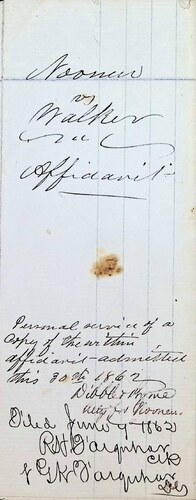 Noonen
vs
Walker
Affidavit
Personal service of a
copy of the within
affidavit admitted
this 30th 1862
Dibble & Byrne
Atty for Noonen.
Filed June 9 1862
R H Farquhar
Clk
G H Farquhar